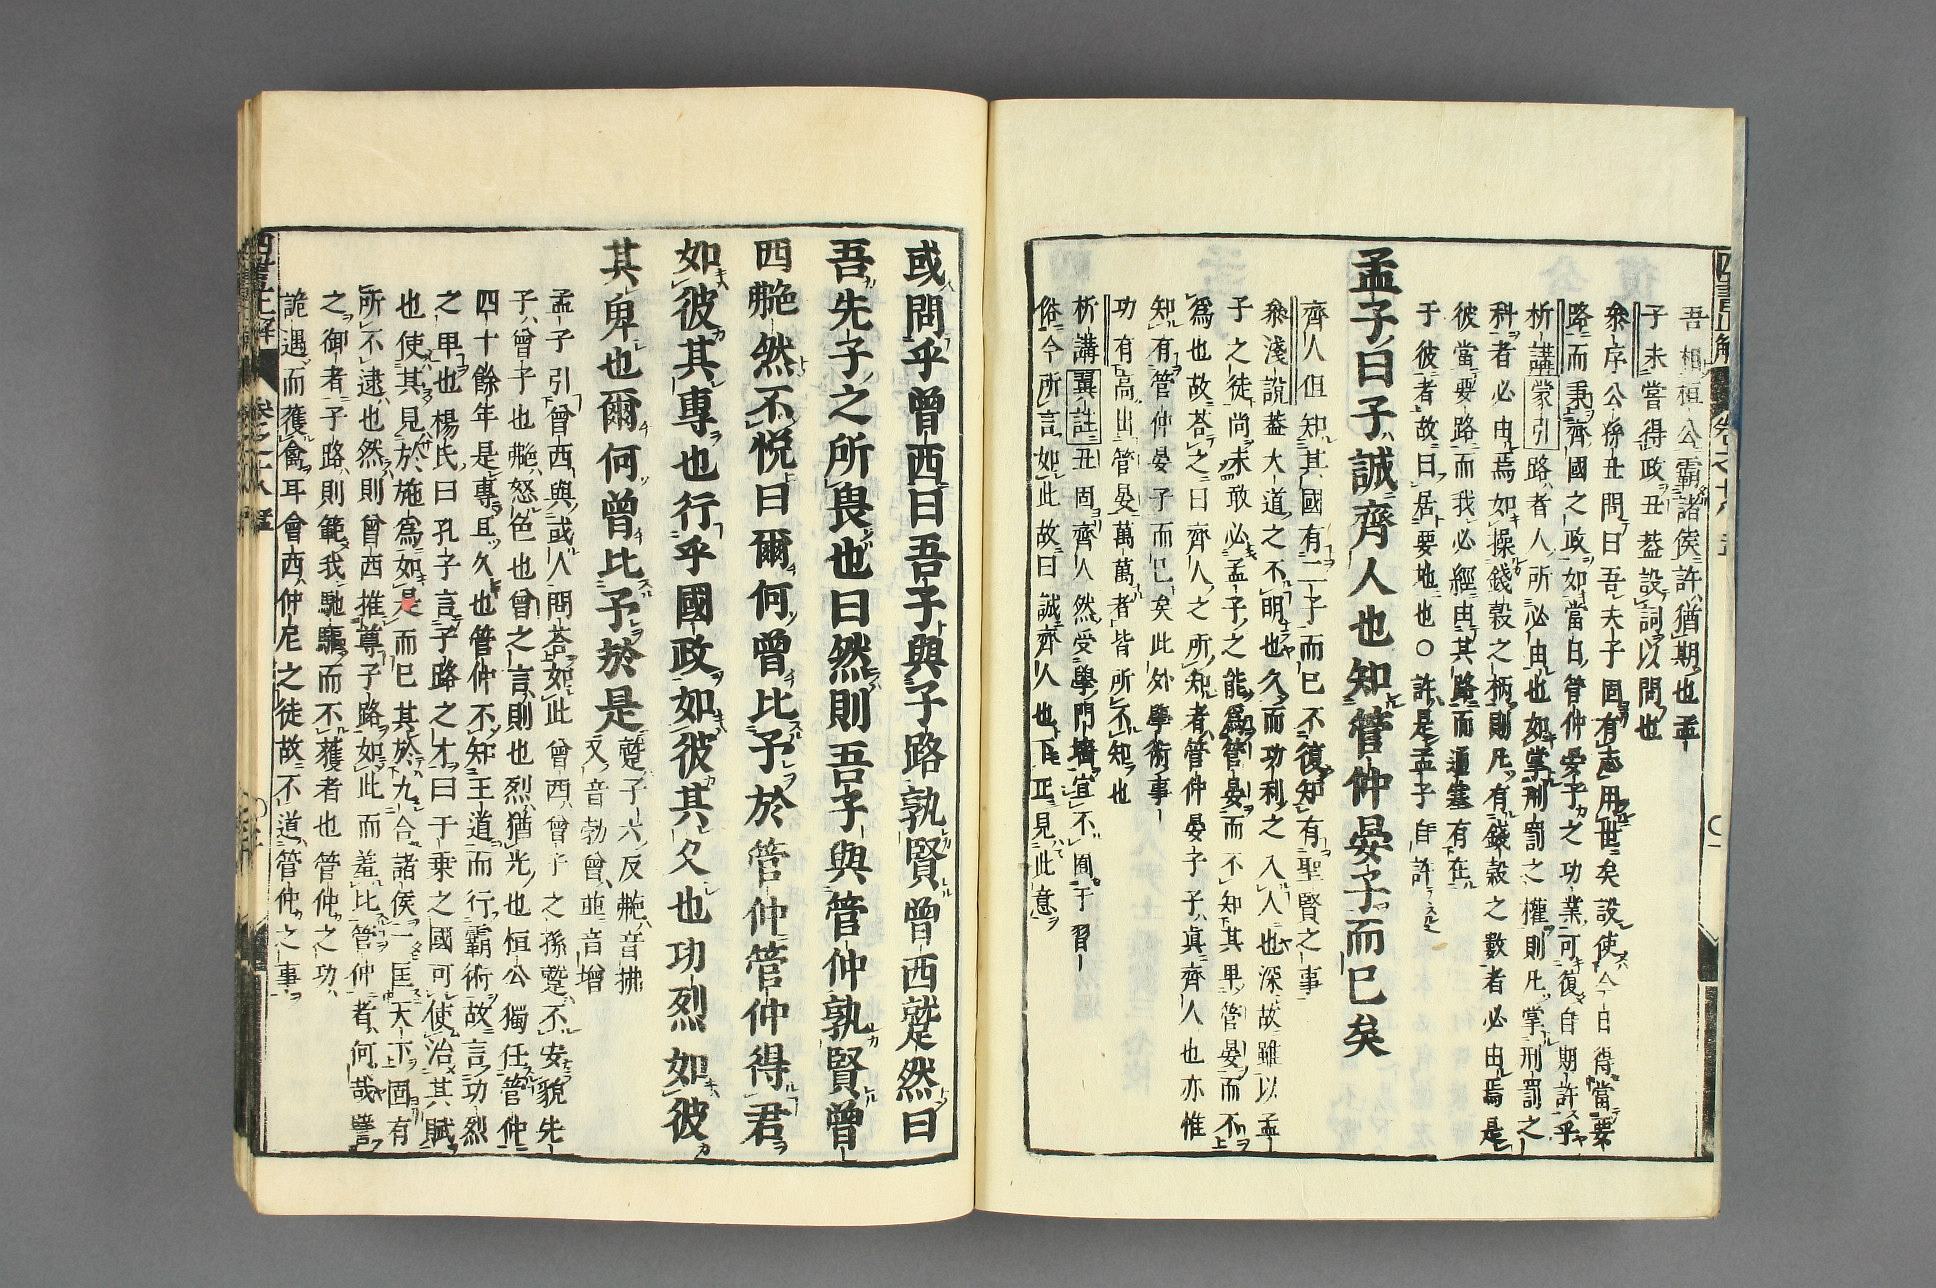 吾相桓公霸諸侯許猶期也孟
子未嘗得政丑葢設詞以問也
叅序公孫丑問曰吾夫子固有志用世矣設使今日得當要
路而秉齊國之政如當日管仲晏子之功業可復自期許乎
析講蒙引路者人所必由也如掌刑罰之權則凡掌刑罰之
科者必由焉如操錢糓之柄則凡有錢糓之數者必由焉是
彼當要路而我必經由其路而通塞有在
于彼者故曰居要地也○許是孟子自許
孟子曰子誠齊人也知管仲晏子而已矣
齊人但知其國有二子而已不復知有聖賢之事
叅淺說葢大道之不明也久而功利之入人也深故雖以孟
子之徒尚未敢必孟子之能爲管晏而不知其卑管晏而不
爲也故荅之曰齊人之所知者管仲晏子子眞齊人也亦惟
知有管仲晏子而已矣此外學術事
功有高出管晏萬萬者皆所不知也
析講翼註丑固齊人然受學門墻宜不囿于習
俗今所言如此故曰誠齊人也下正見此意
或問乎曾西曰吾子與子路孰賢曾西蹵然曰
吾先子之所畏也曰然則吾子與管仲孰賢曾
西艴然不悅曰爾何曾比予於管仲管仲得君
如彼其專也行乎國政如彼其久也功烈如彼
其卑也爾何曾比予於是
蹵子六反艴音拂
又音勃曾並音增
孟子引曾西與或人問荅如此曾西曾子之孫蹵不安貌先
子曾子也艴怒色也曾之言則也烈猶光也桓公獨任管仲
四十餘年是專且久也管仲不知王道而行霸術故言功烈
之卑也楊氏曰孔子言子路之才曰千乘之國可使治其賦
也使其見於施爲如是而已其於九合諸侯一匡天下固有
所不逮也然則曾西推尊子路如此而羞比管仲者何哉譬
之御者子路則範我馳驅而不獲者也管仲之功
詭遇而獲禽耳曾西仲尼之徒故不道管仲之事